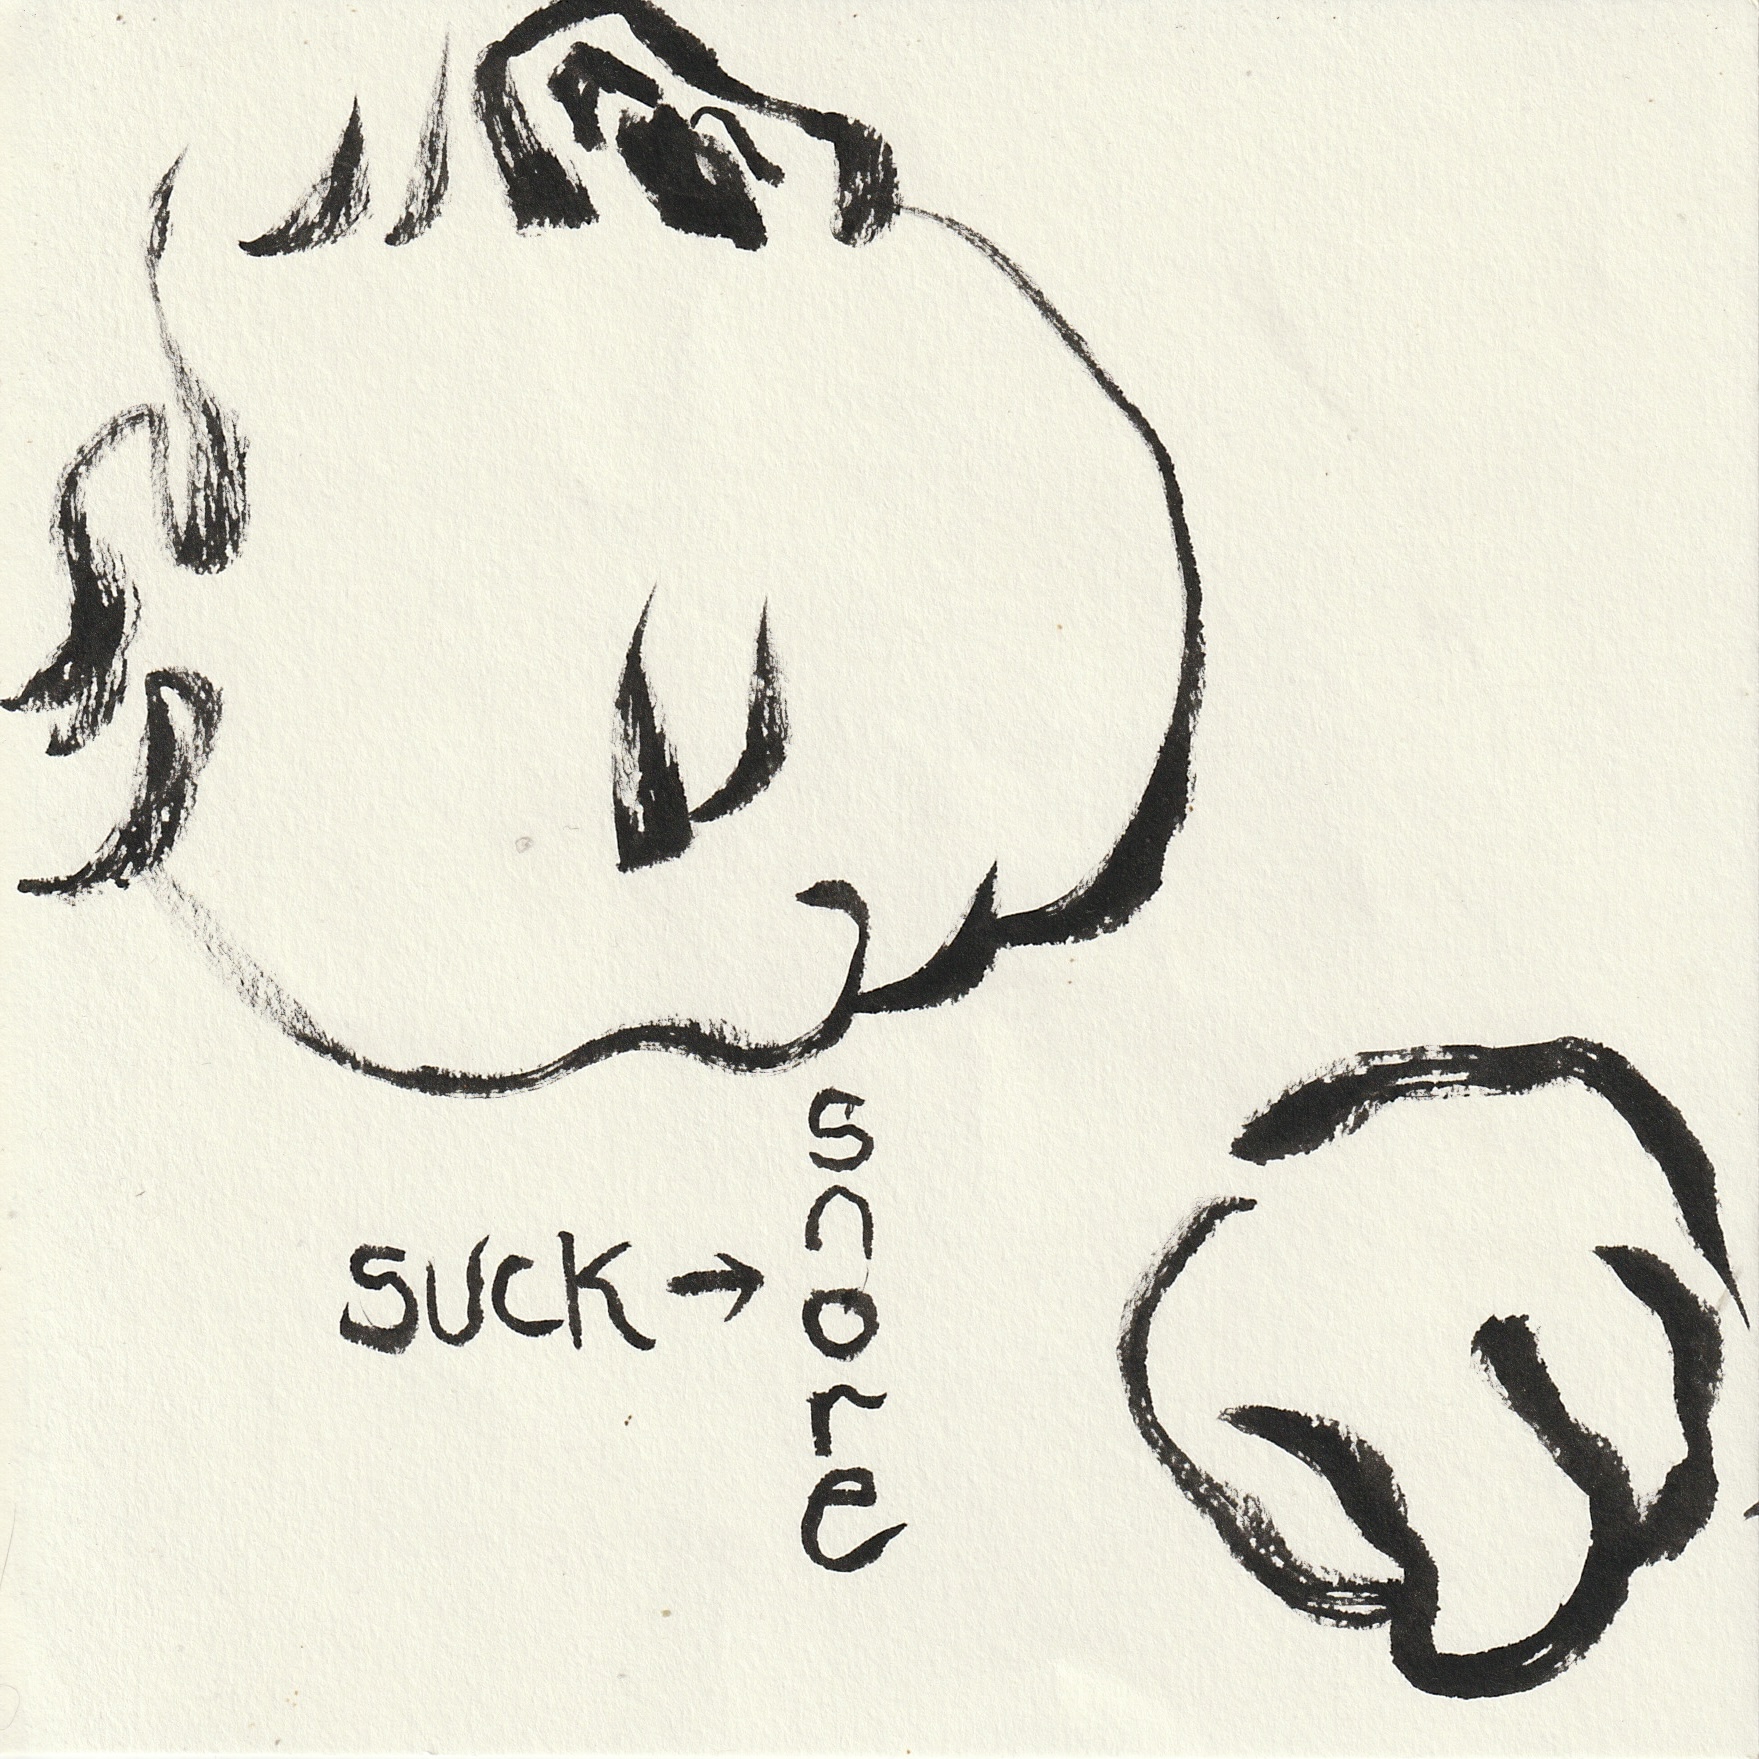 SUCK →
snore